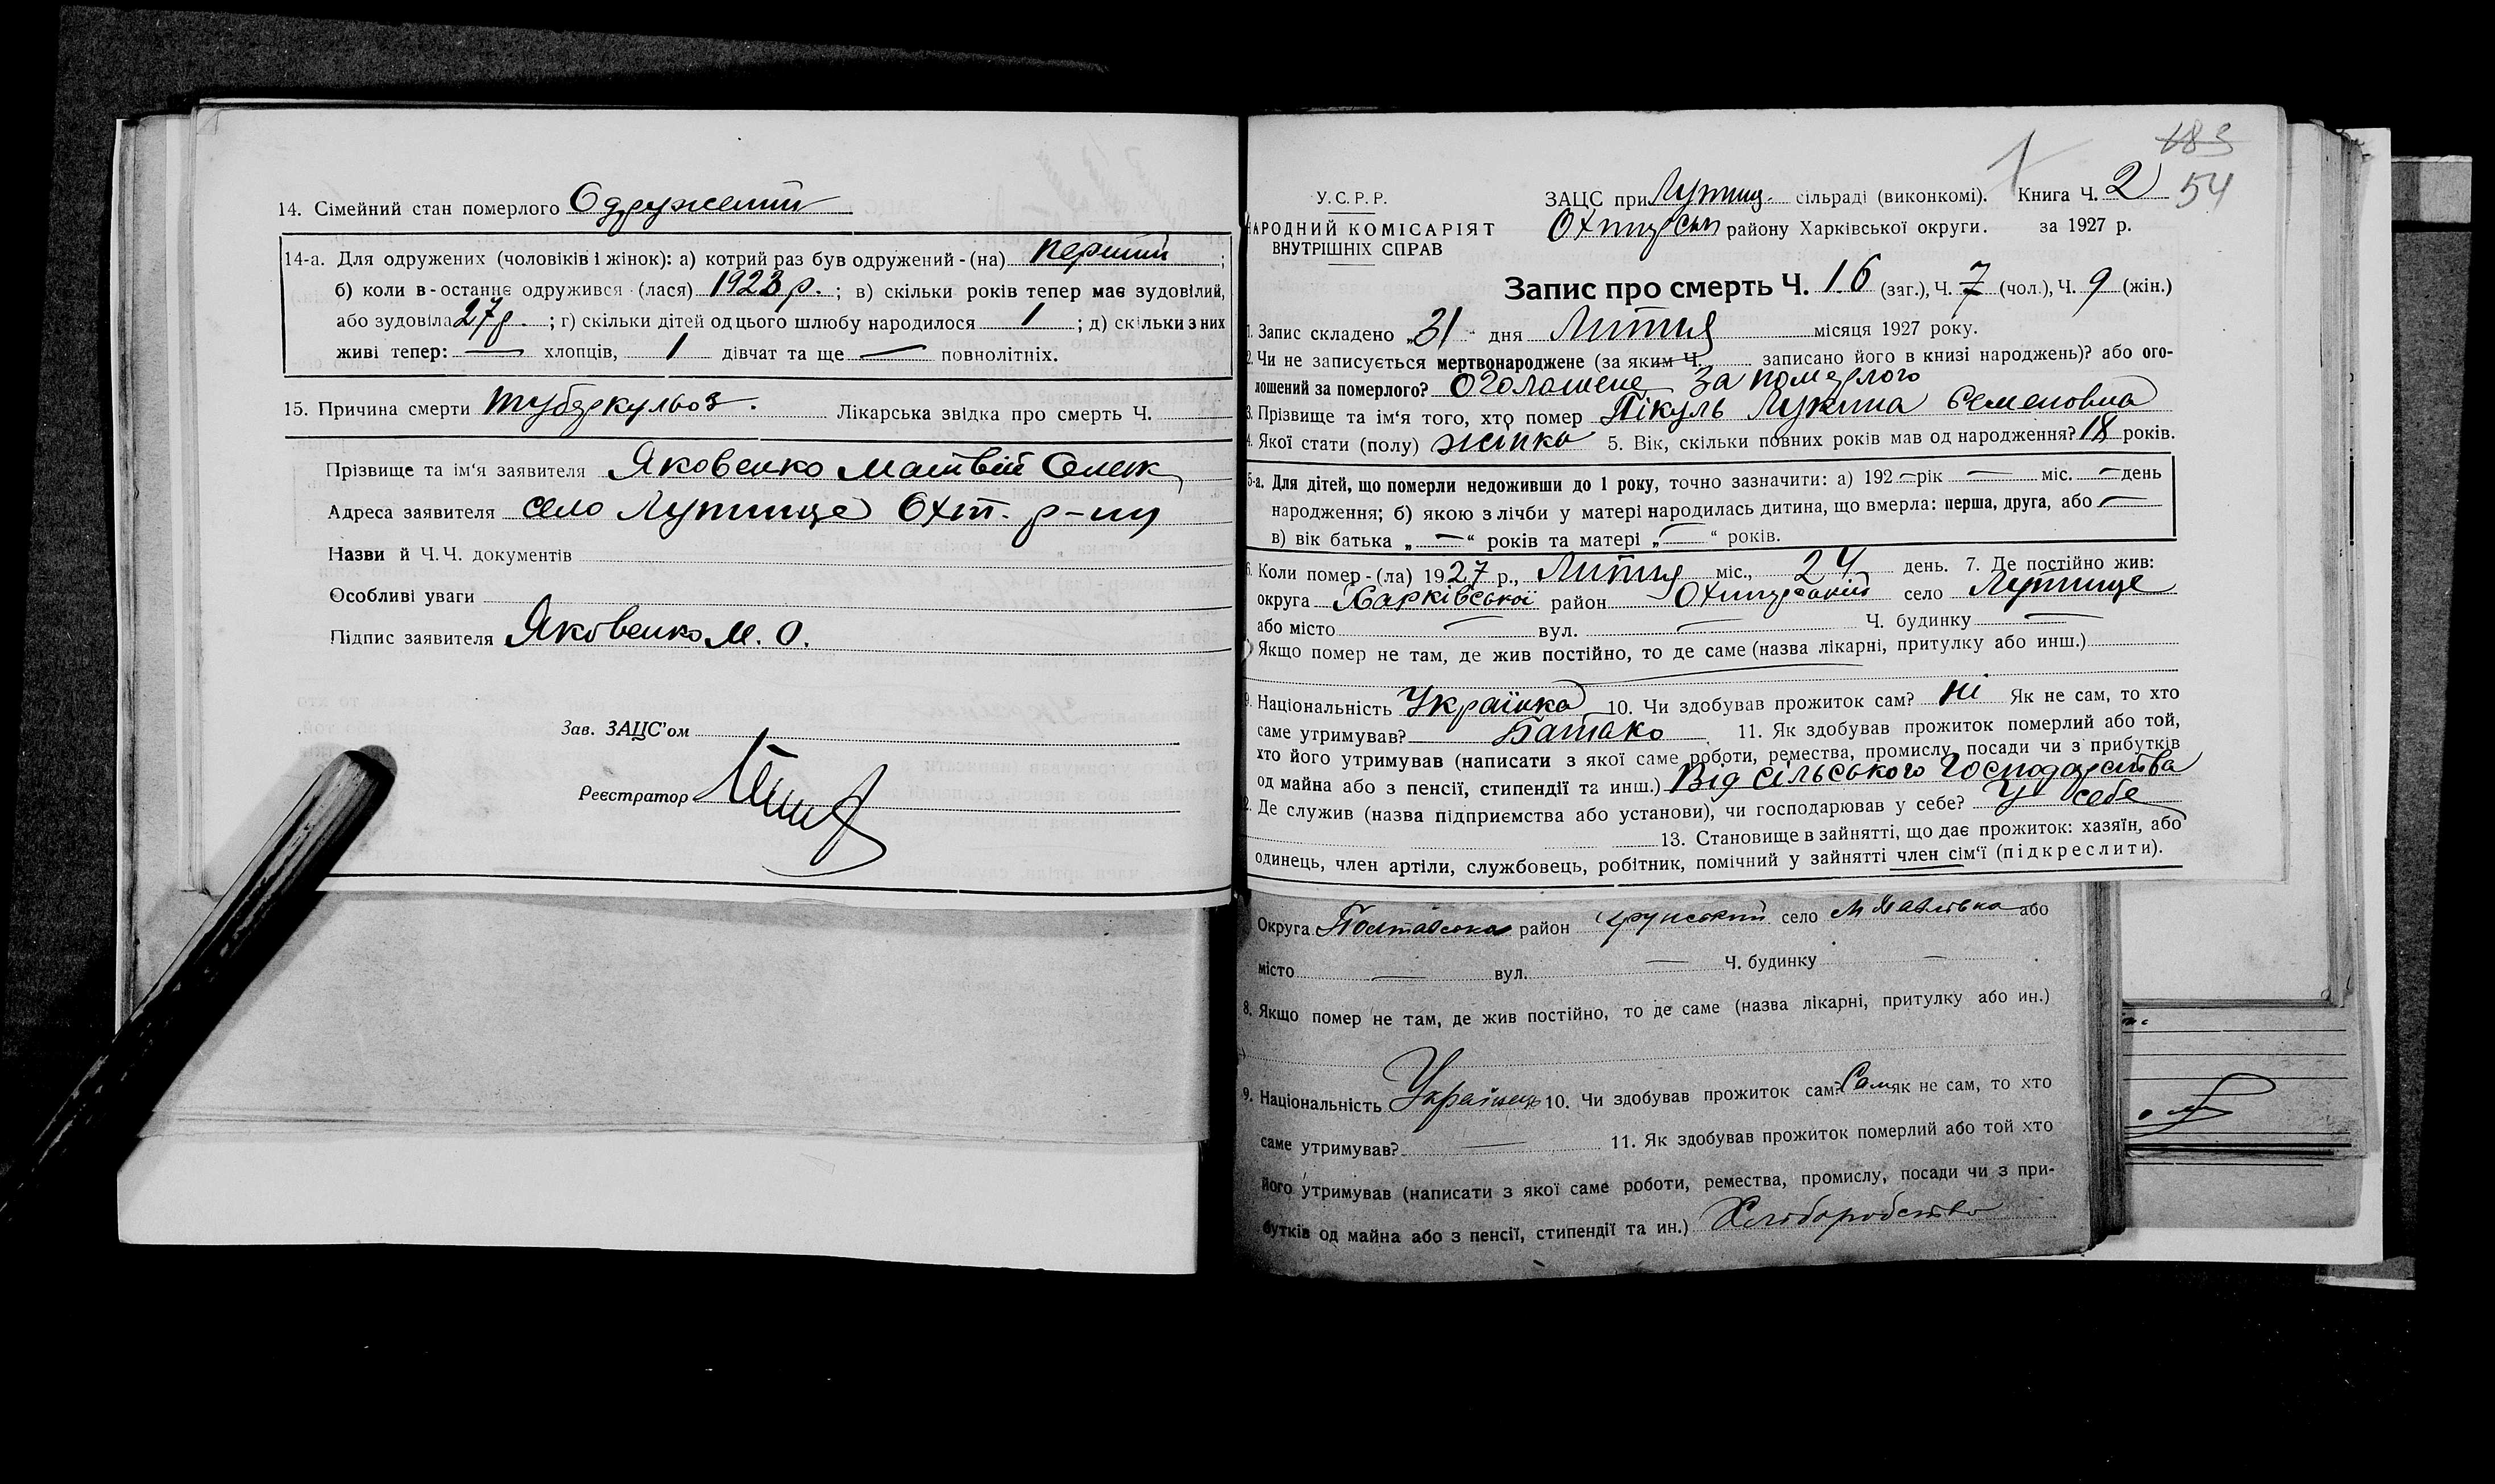 14. Сімейний стан померлого Одружений
14-а. Для одружених (чоловіків і жінок): а) котрий раз був одружений - (на) перший ;
б) коли в - останнє одружився (лася) 1923 р. ; в) скільки років тепер має зудовілий,
або зудовіла 27 р. ; г) скільки дітей од цього шлюбу народилося 1 ; д) скільки з них
живі тепер: — хлопців, 1 дівчат та ще — повнолітніх.
15. Причина смерти туберкульоз. Лікарська звідка про смерть Ч.
Прізвище та ім'я заявителя Яковенко Матвій Олек
Адреса заявителя село Лутище Охт. р-ну
Назви й Ч.Ч. документів
Особливі уваги
Підпис заявителя Яковенко М. О.
Зав. ЗАЦС'ом
Реєстратор
183
54
У.С.Р.Р.
НАРОДНИЙ КОМІСАРІЯТ
ВНУТРІШНІХ СПРАВ
ЗАЦС при Лутищ. сільраді (виконкомі). Книга Ч. 2
району Харківської округи. за 1927 р.
Запис про смерть Ч. 16 (заг.), Ч. 7 (чол.), Ч. 9 (жін.)
1. Запис складено „31" дня Липня місяця 1927 року.
2. Чи не записується мертвонароджене (за яким Ч. записано його в книзі народжень)? або ого-
лошений за померлого? оголошене за померлого
3. Прізвище та ім'я того, хто помер Пікуль Лукина Семеновна
4. Якої стати (полу) жінка 5. Вік, скільки повних років мав од народження? 18 років.
5-а. Для дітей, що померли недоживши до 1 року, точно зазначити: а) 192 — рік — міс. — день
народження; б) якою з лічби у матері народилась дитина, що вмерла: перша, друга, або —
в) вік батька „ — “ років та матері „ — “ років.
6. Коли помер - (ла) 1927 р., Липня міс., 24 день. 7. Де постійно жив:
округа Харківської район Охтирський село Лутище
або місто — вул. — Ч. будинку —
Якщо помер не там, де жив постійно, то де саме (назва лікарні, притулку або инш.)
9. Національність Українка 10. Чи здобував прожиток сам? ні Як не сам, то хто
саме утримував? Батько 11. Як здобував прожиток померлий або той,
хто його утримував (написати з якої саме роботи, ремества, промислу, посади чи з прибутків
од майна або з пенсії, стипендії та инш.) Від сільського господарства
2. Де служив (назва підприємства або установи), чи господарював у себе? У себе
13. Становище в зайнятті, що дає прожиток: хазяїн, або
одинець, член артіли, службовець, робітник, помічний у зайнятті член сім'ї (підкреслити).
Округа Полтавська район село М Павлівка або
місто — вул. — Ч. будинку —
8. Якщо помер не там, де жив постійно, то де саме (назва лікарні, притулку або ин.)
9. Національність Українець 10. Чи здобував прожиток сам? Сам як не сам, то хто
саме утримував? — 11. Як здобував прожиток померлий або той хто
його утримував (написати з якої саме роботи, ремества, промислу, посади чи з при-
бутків од майна або з пенсії, стипендії та ин.) Хліборобство